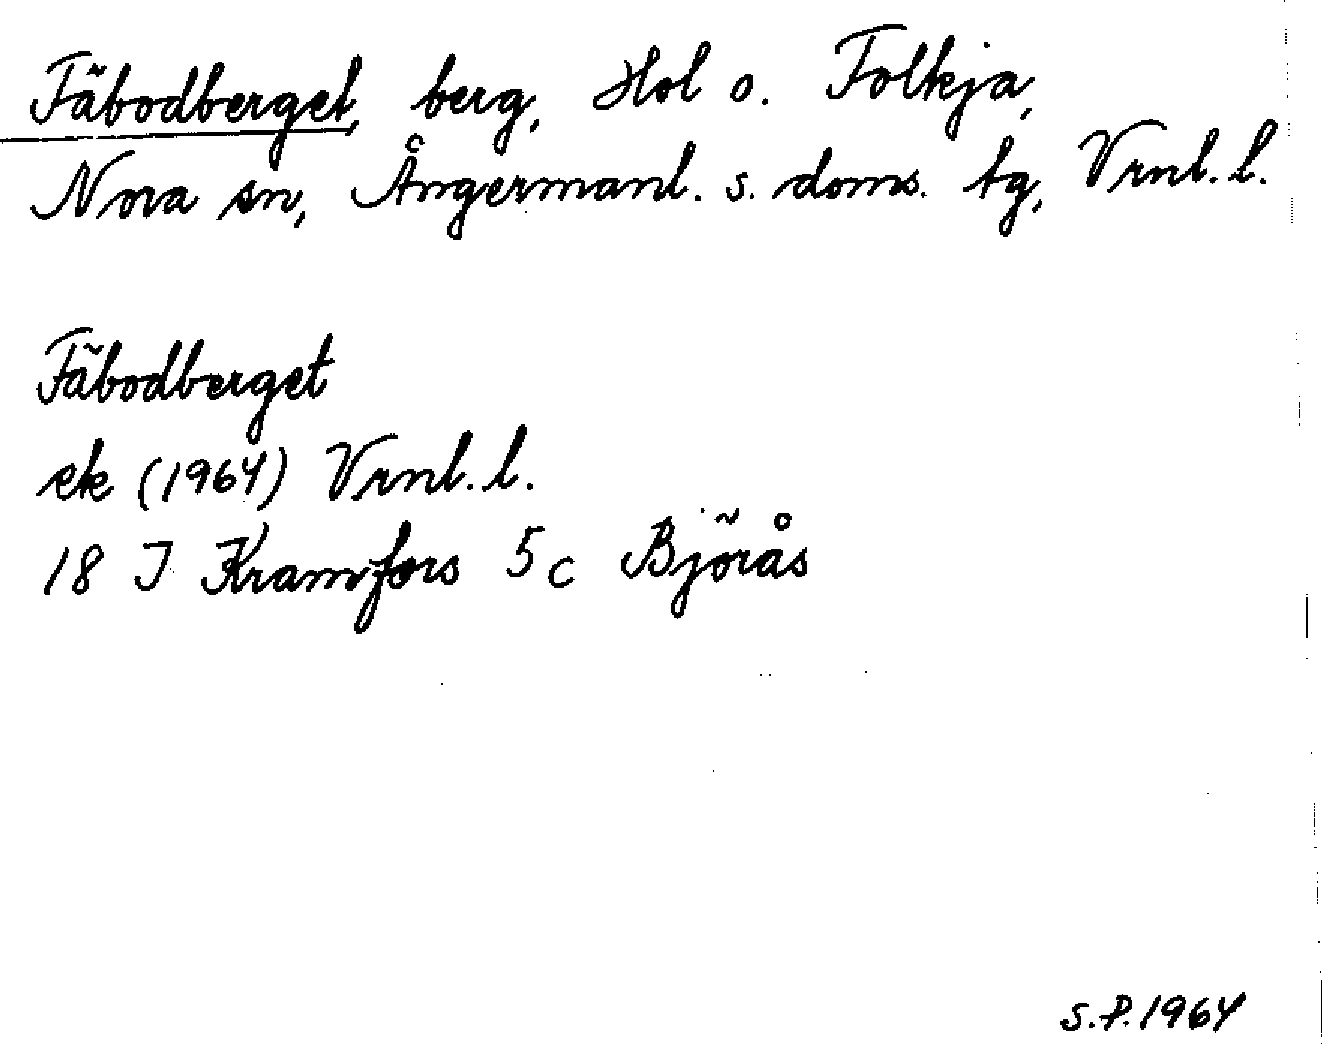 Fäbodberget, berg, Hol o. Folkja,
Nora sn, Ångermanl. s. doms. tg, Vrnl. l.
Fäbodberget
ek (1964) Vrnl. l.
18 I Kramfors 5 c Björås
S.P. 1964